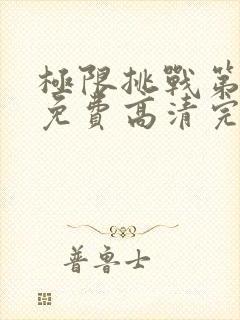 極限挑戰第
免費高清完
普魯士